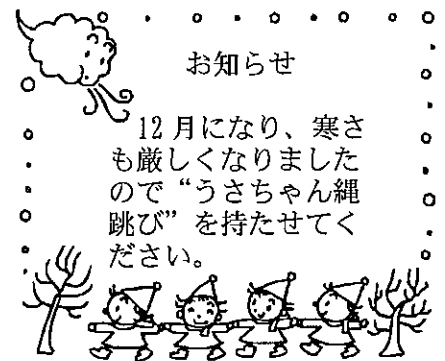 お知らせ
12月になり、寒さ
も厳しくなりました
ので“うさちゃん縄
跳び”を持たせてく
ださい。